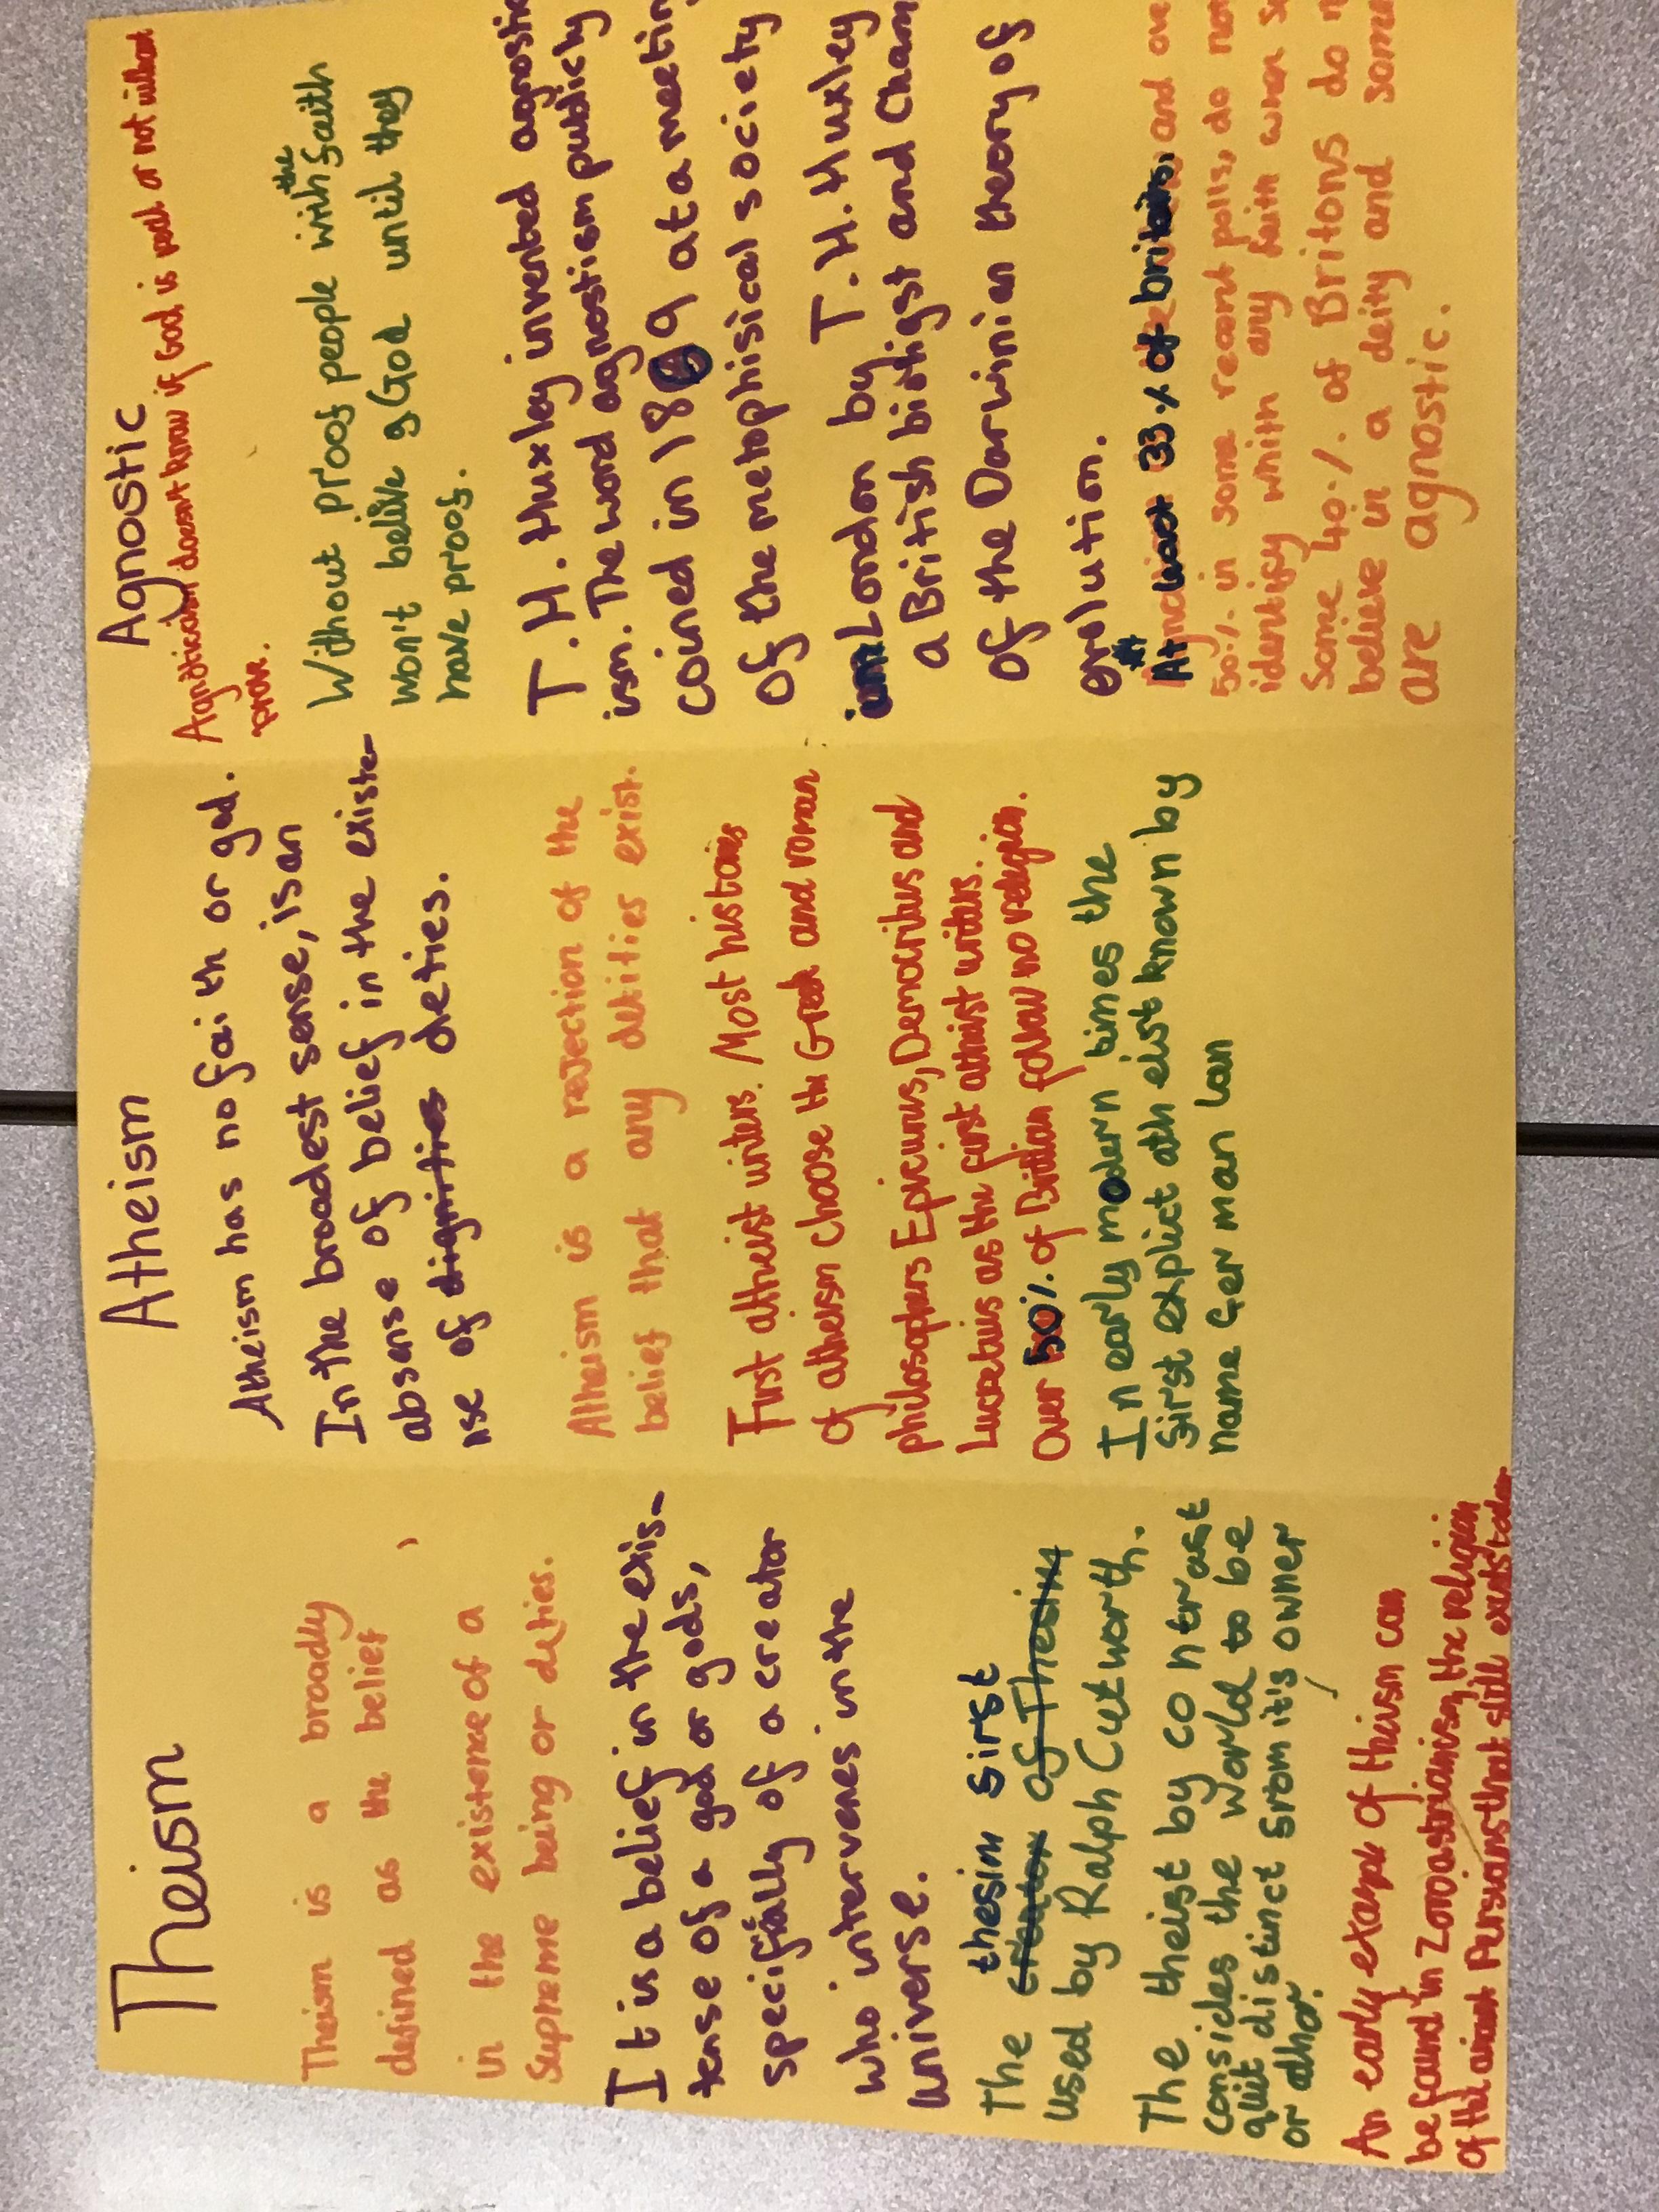 Theism
Theism is a broadly
defined as the belief
in the existence of a
Supreme being or deties.
It is a belief in the exis-
tense of a god or gods,
specifially of a creator
who intervenes in the
universe.
thesim first
The creator of Thesim
used by Ralph Cutworth.
The theist by contrast
consides the world to be
quit distinct from it's owner
or athor.
An early exampl of theism can
be found in Zoroastrianism, the religion
of the Persians that still exists
Atheism
Atheism has no faith or god.
In the broadest sense, is an
absense of belief in the existe-
nse of dignities deties.
Atheism is a rejection of the
belief that any deities exist.
First atheist writers. Most histans
of atheism choose the Greek and roman
philosophers Epicurus, Democritus and
Lucretius as the first atheist writers.
Over 50% of Brittian follow no religion.
In early modern times the
first explict atheist known by
name German lan
Agnostic
doesnt know if God is real or not without
prove.
the
Without proof people with faith
won't belive gGod until they
have proof.
T.H. Huxley invented agnostic
ism. The word agnostism publicly
coined in 1869 at a meeting
of the metaphisical society
London by T.H. Huxley
a British biologist and Cham
of the Darwinian theory of
evolution.
At least 33% of britain. and ove
50% in some recant polls, do not
identify whith any faith when s
Some 40% of Britons do n
believe in a deity and some
are agnostic.